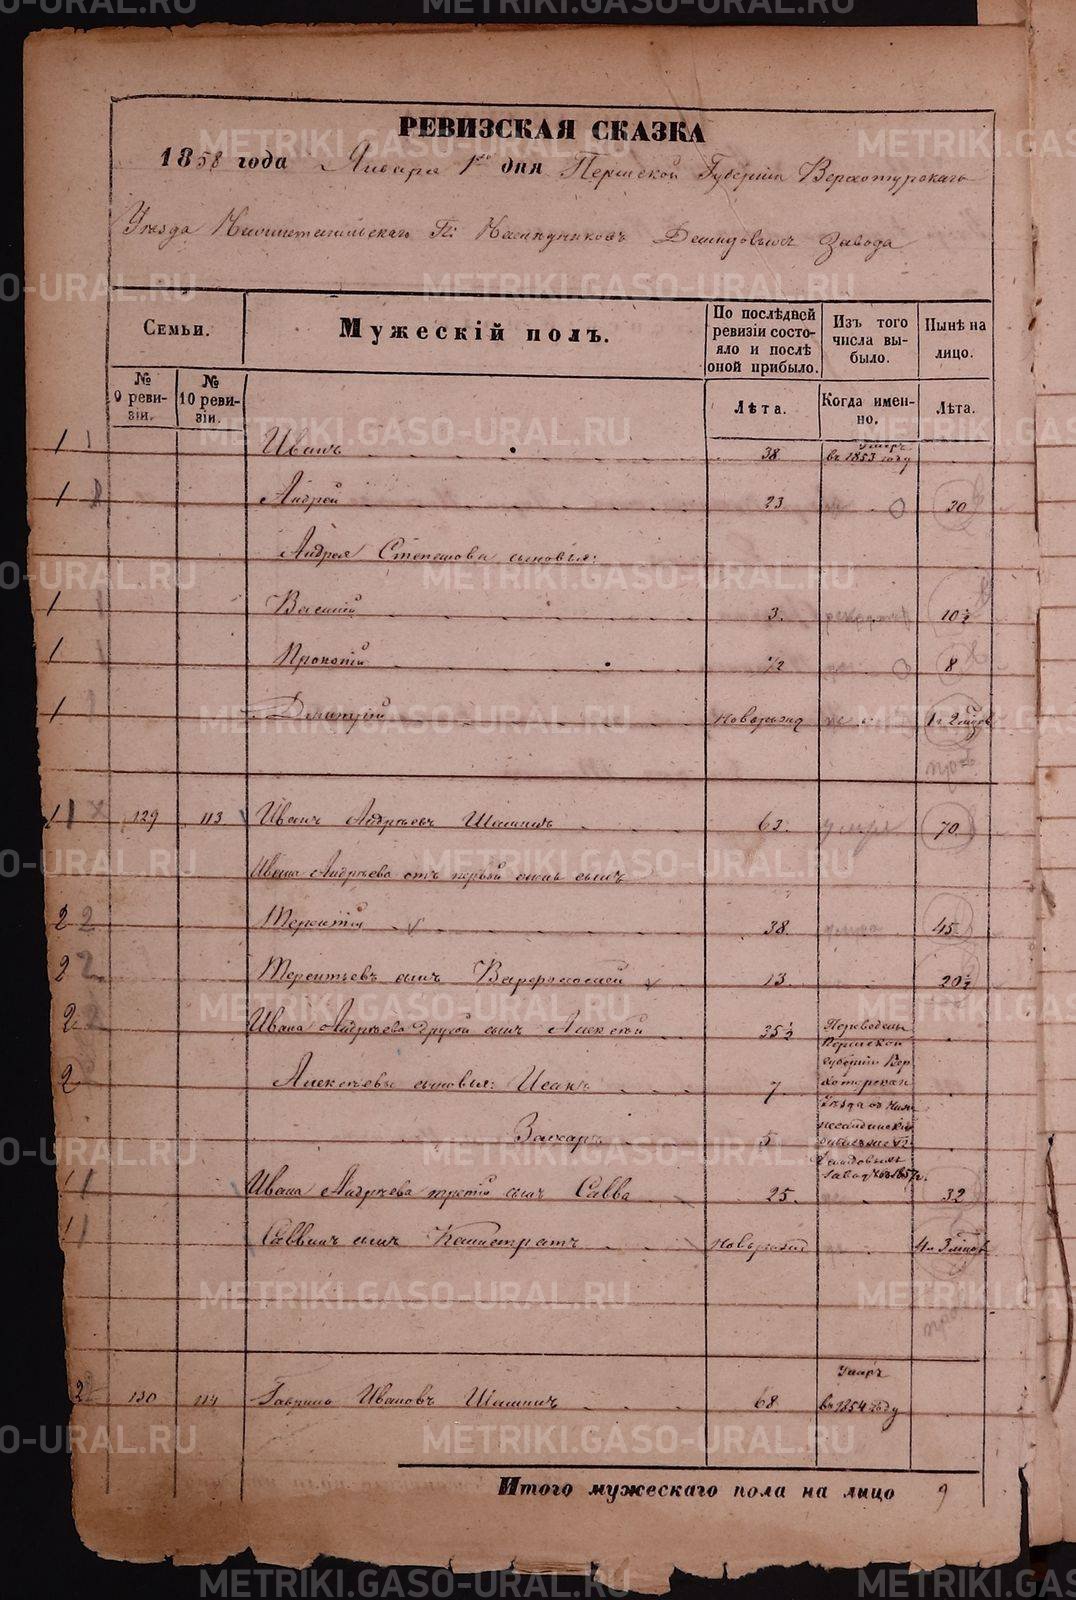 РЕВИЗСКАЯ СКАЗКА
1858 года Января 1го дня Пермской Губернiи Верхотурскаго
Уѣзда Нижнетагильскаго Гг: Наслѣдниковъ Демидовыхъ Завода
Семьи. Мужескiй полъ. По послѣдней ревизiи состояло и послѣ оной прибыло. Изъ того числа выбыло. Нынѣ на лицо.
№ 9 ревизiи. № 10 ревизiи. Лѣта. Когда именно. Лѣта.
1 1 Иванъ 38 Умеръ въ 1853 году
1 Андрей 23 30
Андрея Степанова сыновья:
1 Василiй 3. 10½
1 Прокопiй ½ 8
1 Дмитрiй новорожд 1 г 2 мцов
пров
1 1 129 113 Иванъ Андреевъ Шишинъ 63. умеръ 70
Ивана Андреева отъ первой жены сынъ
2 2 Терентiй 38 45
2 2 Терентьевъ сынъ Варфоломей 13 20½
2 2 Ивана Андреева другой сынъ Алексѣй 35½ Переведены Пермской губернiи Верхотурскаго Уѣзда въ
2 Алексѣевы сыновья: Исакъ 7
Захаръ 5 Демидовыхъ заводъ въ 1857 г.
1 1 Ивана Андреева третiй сынъ Савва 25. 32
1 1 Саввинъ сынъ Калистратъ новорожд 4 г 3 мцов
пров
2 2 130 114 Гаврило Ивановъ Шишинъ 68 Умеръ въ 1854 году
Итого мужескаго пола на лицо 9
METRIKI.GASO-URAL.RU